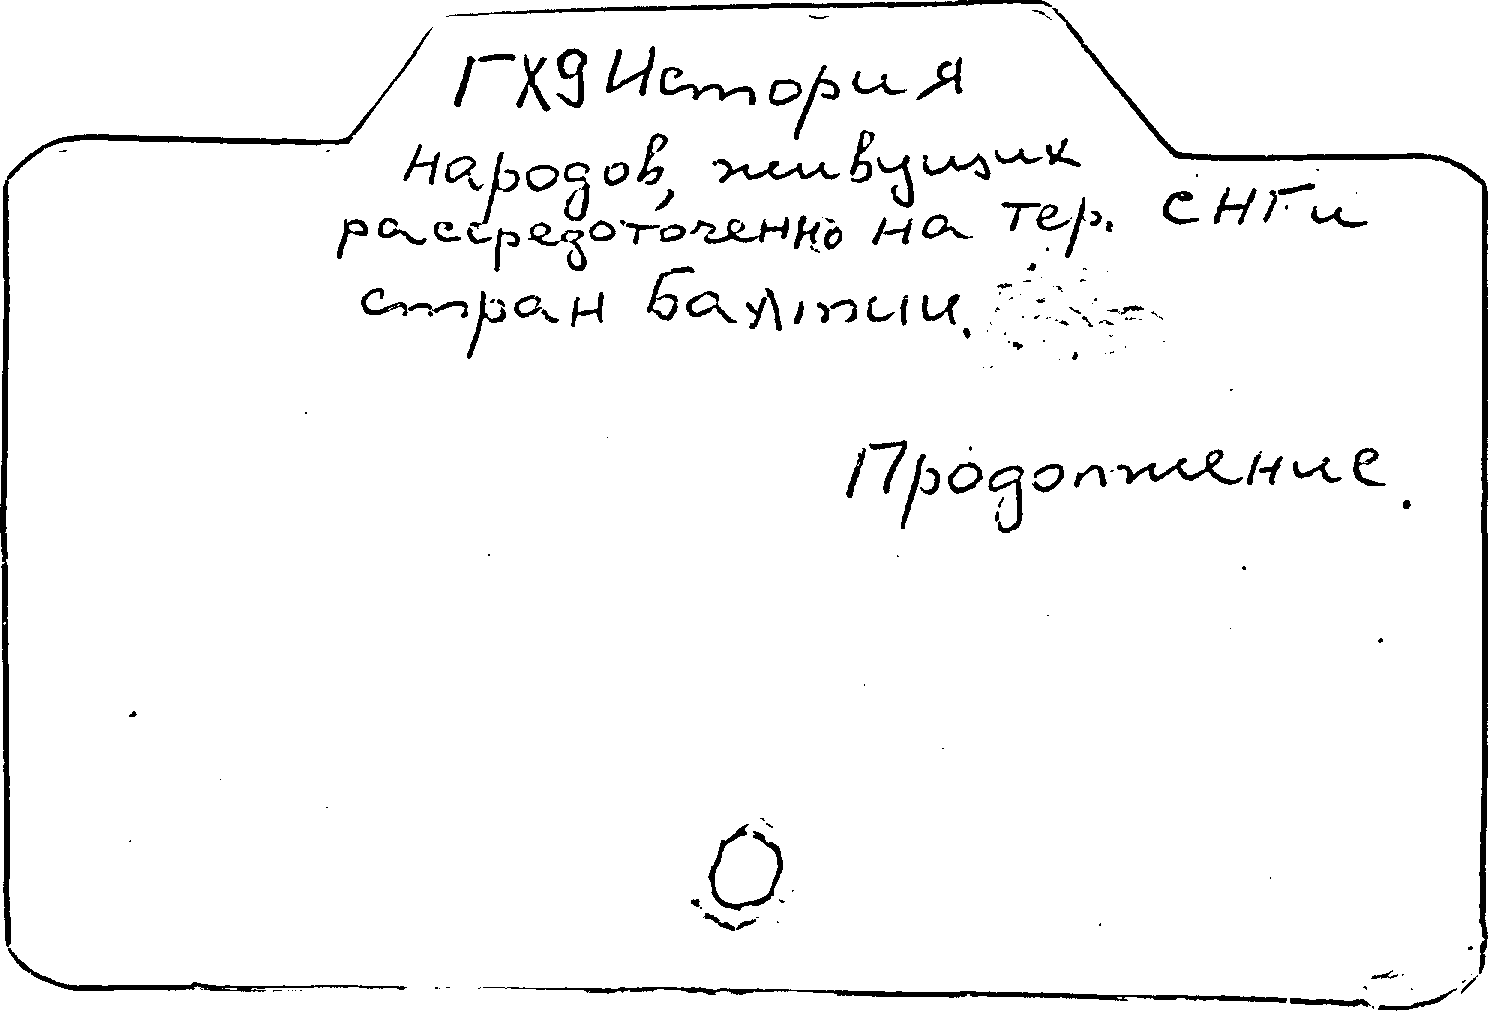 ГХ9 История
народов, живущих
рассредоточенно на тер. СНГ и
стран Балтии.
Продолжение.